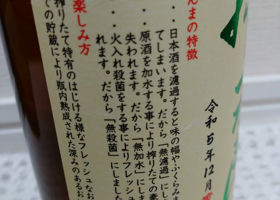 んまの特徴
・日本酒を濾過すると味の幅やふくらみ
てしまいます。だから「無濾過」にし
・原酒を加水する事により搾りたての素
失われます。だから「無加水」にしま
・火入れ殺菌をする事によりフレッシュ
れます。だから「無殺菌」にしました
楽しみ方
搾りたて特有のはじける様なフレッシュなお
での貯蔵により瓶内熟成された深みのあるお
令和5年12月